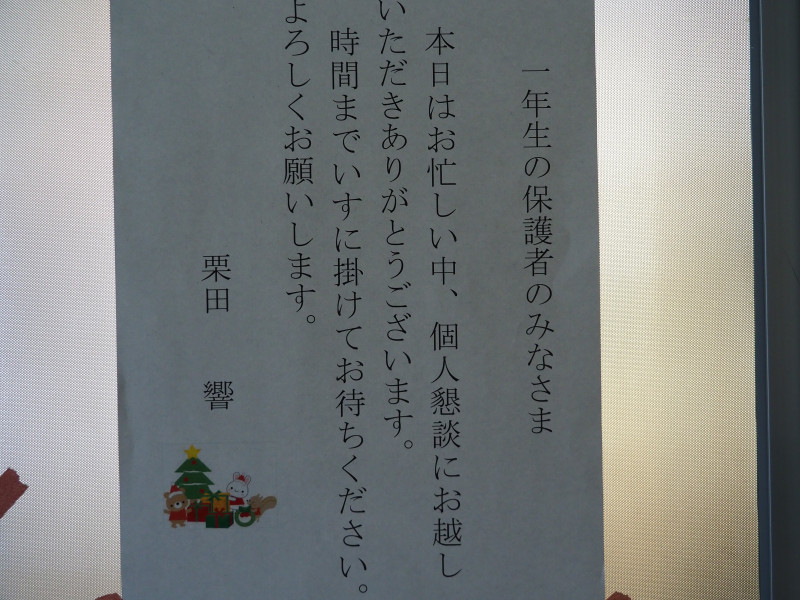 一年生の保護者のみなさま
本日はお忙しい中、個人懇談にお越し
いただきありがとうございます。
時間までいすに掛けてお待ちください。
よろしくお願いします。
栗田　響